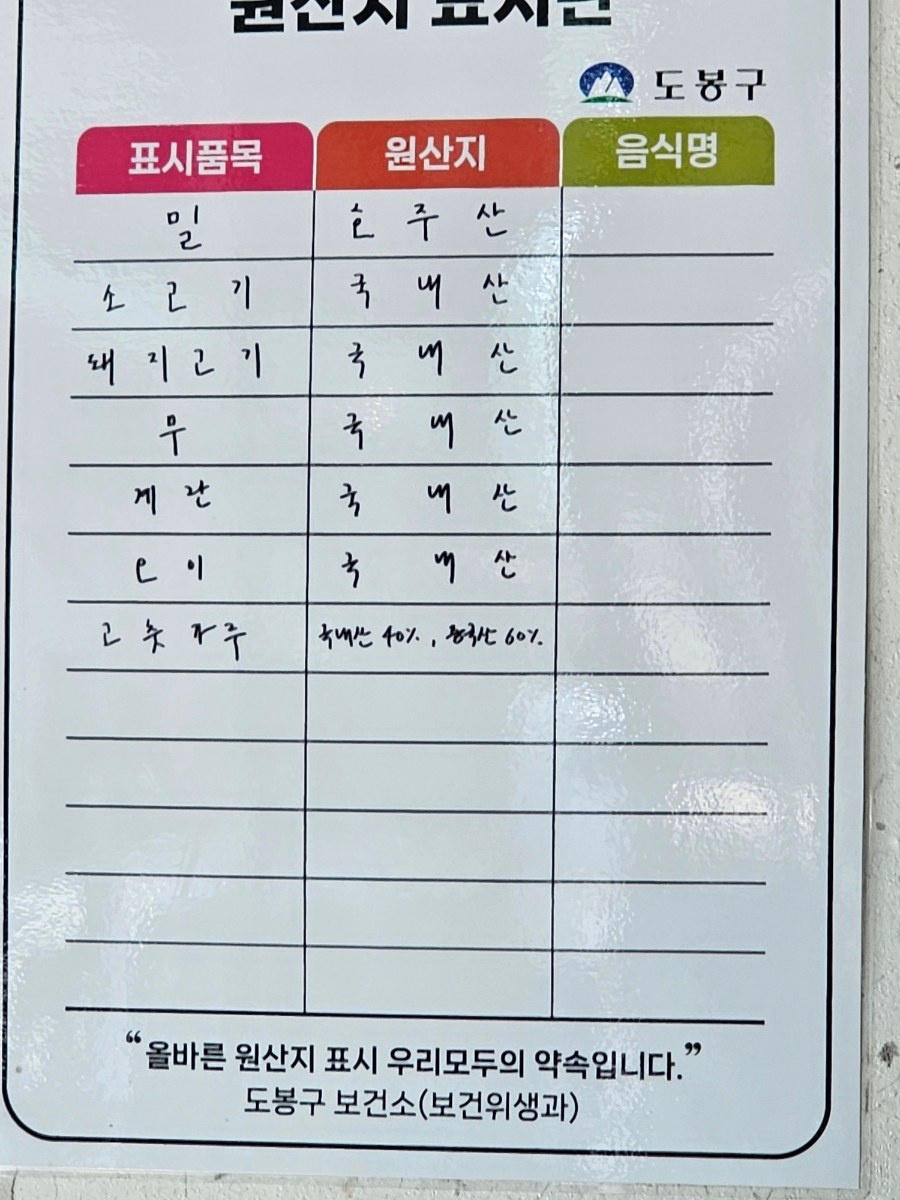 원산지 표시판
도봉구
표시품목 원산지 음식명
밀 호주산
소고기 국내산
돼지고기 국내산
무 국내산
계란 국내산
오이 국내산
고춧가루 국내산 40%, 중국산 60%
“올바른 원산지 표시 우리모두의 약속입니다.”
도봉구 보건소(보건위생과)